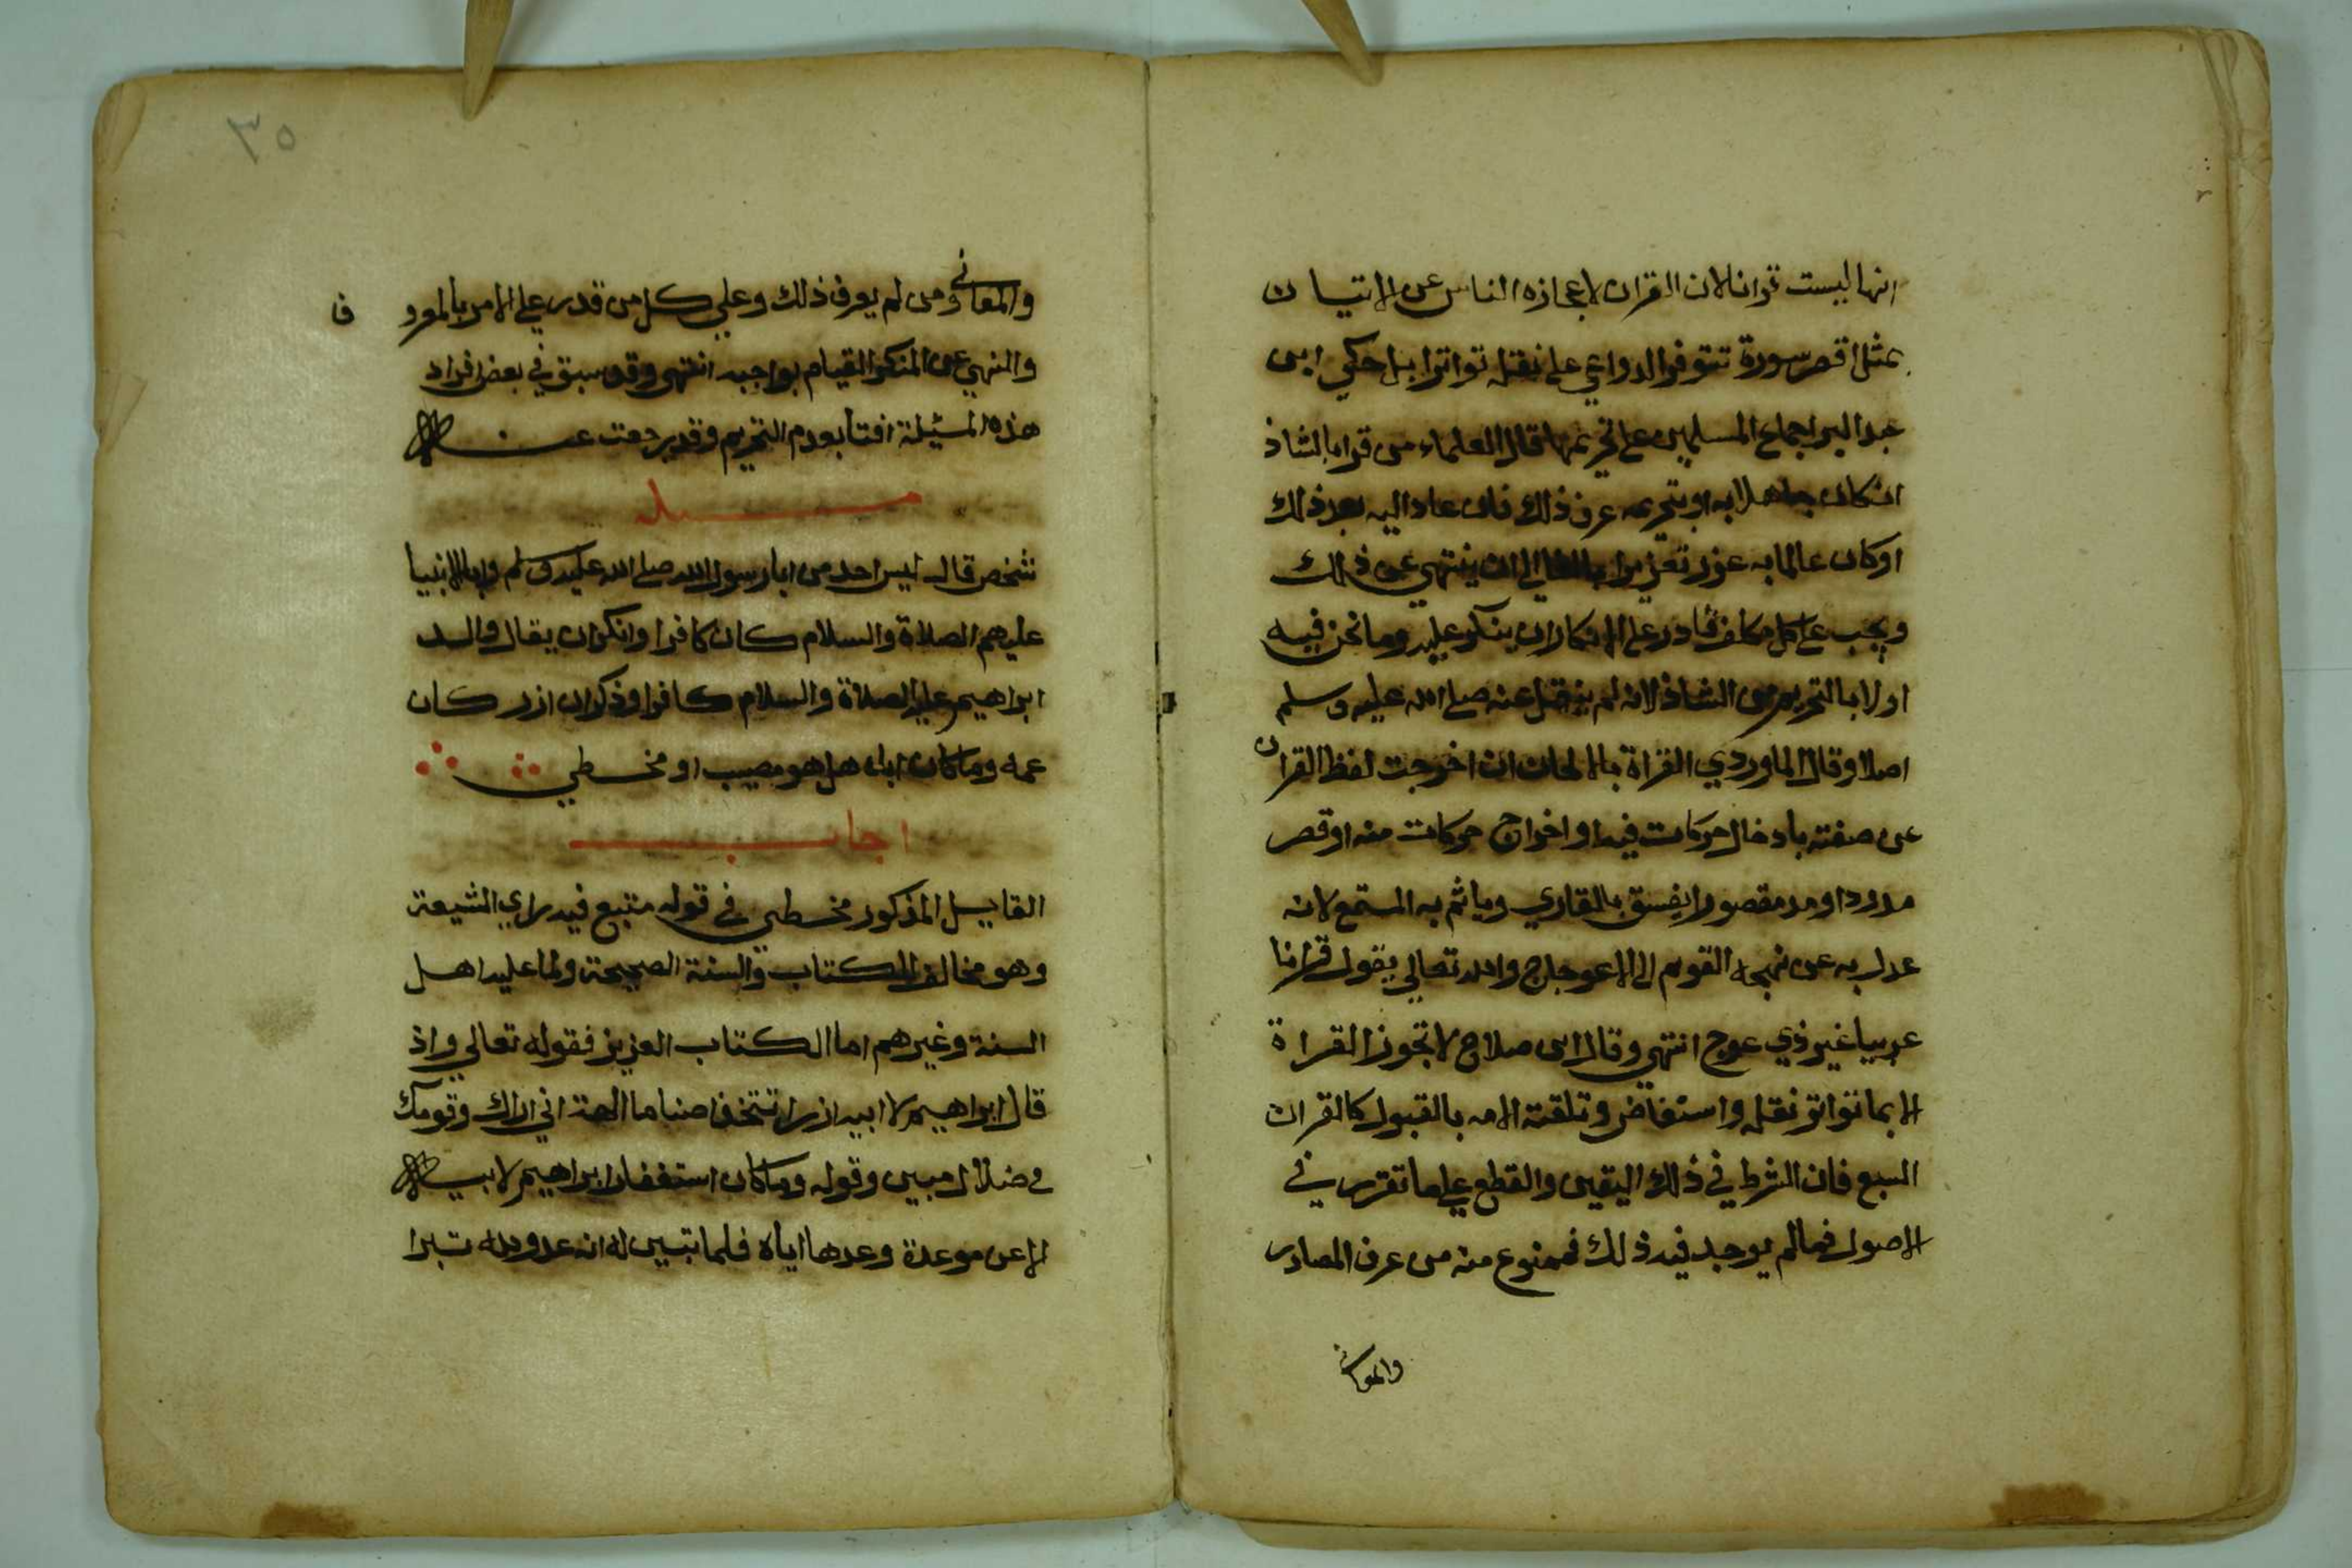 انها ليست قرانا لان القران لاعجازه الناس عن الاتيان
بمثل اقصر سورة تتوفر الدواعي على نقله تواترا بل حكي ابن
عبد البر اجماع المسلمين على تحريمها قال العلماء من قرا بالشاذ
ان كان جاهلا به او بتحريمه عرف ذلك فان عاد اليه بعد ذلك
او كان عالما به عزر تعزيرا بالغا الي ان ينتهي عن ذلك
ويجب على كل مكلف قادر على الانكار ان ينكر عليه وما نحن فيه
اولا بالتحريم من الشاذ لانه لم ينقل عنه صلى الله عليه وسلم
اصلا وقال الماوردي القراة بالالحان ان اخرجت لفظ القران
عن صفته بادخال حركات فيه او اخراج حركات منه او قصر
مدود او مد مقصور يفسق به القاري وياثم به المستمع لانه
عدل به عن نهجه القويم الى الاعوجاج والله تعالي يقول قرانا
عربيا غير ذي عوج انتهى وقال ابن صلاح لا تجوز القراة
الا بما تواتر نقله واستفاض وتلقته الامه بالقبول كالقران
السبع فان الشرط في ذلك اليقين والقطع علي ما تقرر في
الاصول فما لم يوجد فيه ذلك فممنوع منه من عرف المصادر
والمعاني
٣٥
والمعاني ومن لم يعرف ذلك وعلي كل من قدر علي الامر بالمعروف
والنهي عن المنكر القيام بواجبه انتهى وقد سبق في بعض افراد
هذه المسئلة افتا بعدم التحريم وقد رجعت عنه
مسئلة
شخص قال ليس احد من ابا رسول الله صلى الله عليه وسلم وابا الانبيا
عليهم الصلاة والسلام كان كافرا وانكر ان يقال والد
ابراهيم عليه الصلاة والسلام كافرا وذكر ان ازر كان
عمه وما كان اباه هل هو مصيب او مخطي
اجاب
القايل المذكور مخطي في قوله متبع فيه راي الشيعة
وهو مخالف للكتاب والسنة الصحيحة ولما عليه اهل
السنة وغيرهم اما الكتاب العزيز فقوله تعالي واذ
قال ابراهيم لابيه ازر اتتخذ اصناما الهة اني اراك وقومك
في ضلال مبين وقوله وما كان استغفار ابراهيم لابيه
الا عن موعدة وعدها اياه فلما تبين له انه عدو لله تبرا